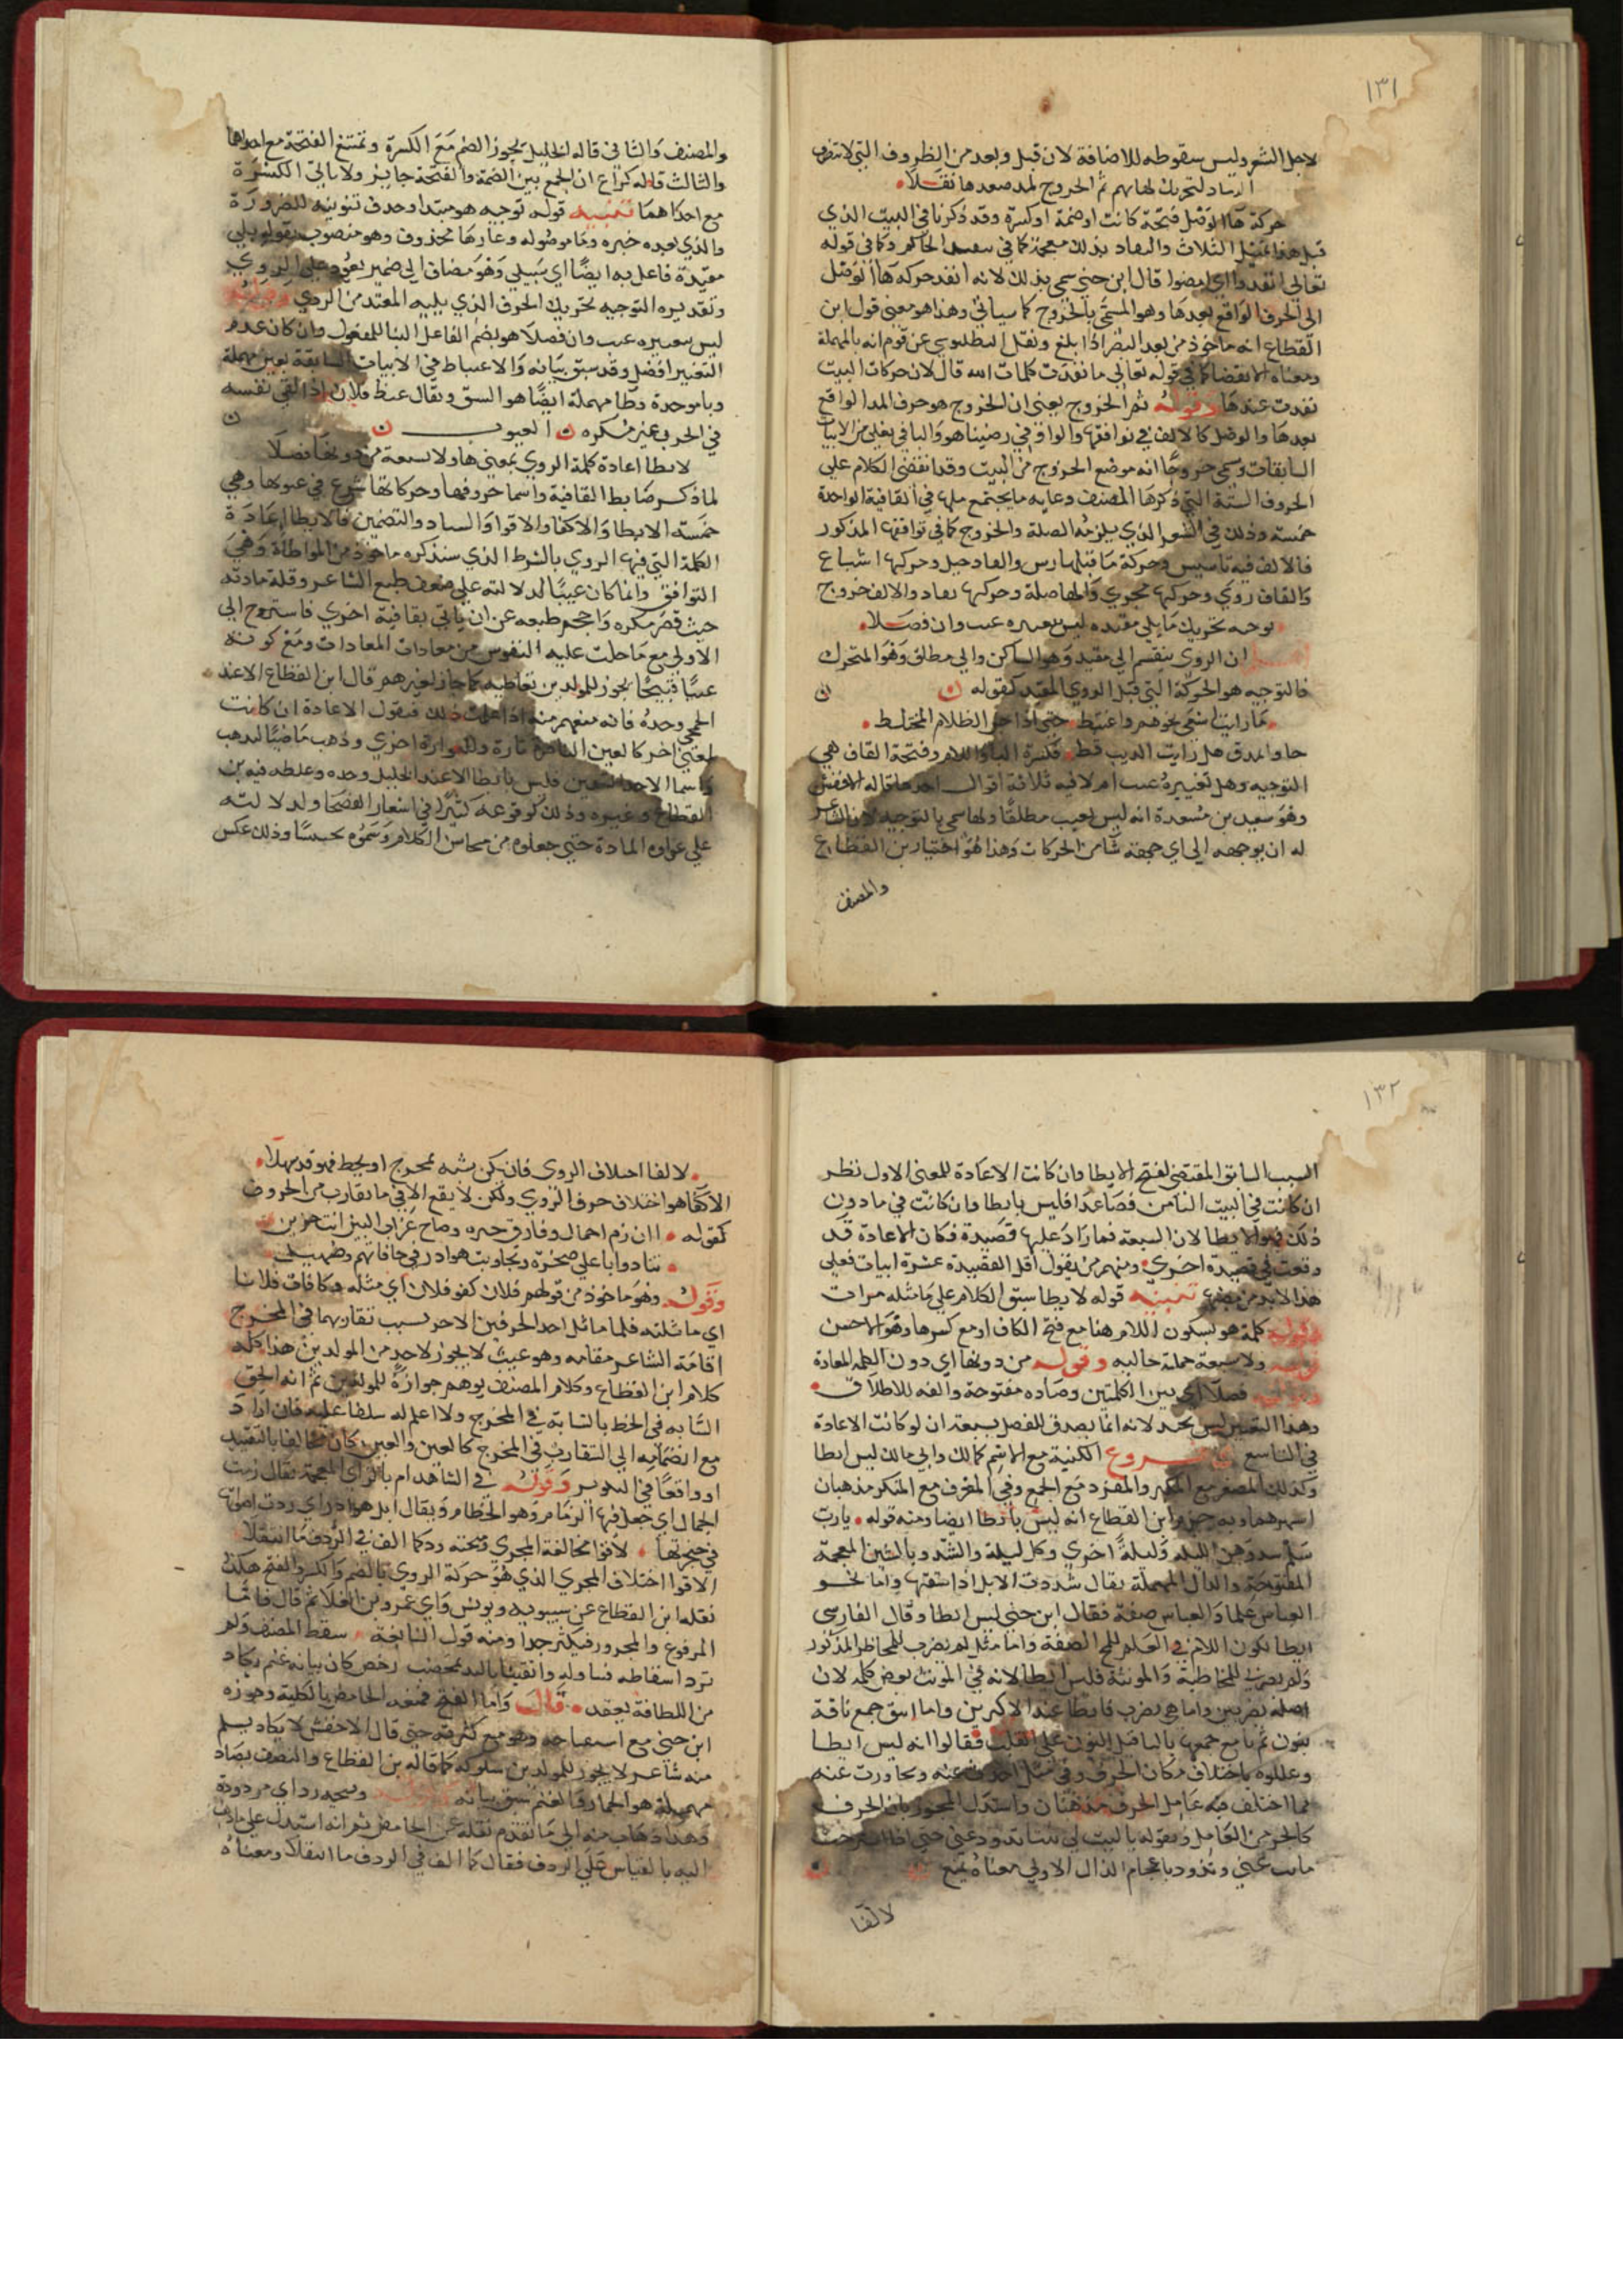 ١٣١
لاجل الشعر وليس سقوطه للاضافة لان قبل وبعد من الظروف التي لا تتصرف
لتحريك لها بهم ثم الخروج لمد بعدها نقلا
حركة هاء الوصل فتحة كانت او ضمة او كسرة وقد ذكرنا في البيت الذي
قبل هذا تمثيل الثلاث والنفاد بذلك معجمة كما في الحاكم وكما في قوله
تعالى انفذوا اي امضوا قال ابن جني سمي بذلك لانه انفد حركة هاء الوصل
الى الحرف الواقع بعدها وهو المسمى بالخروج كما سياتي وهذا هو معنى قول ابن
القطاع انه ماخوذ من بعد النظر اذا بلغ ونقل البطليوسي عن قوم انه بالمهملة
ومعناه الانقضا كما في قوله تعالى ما نفدت كلمات الله قال لان حركات البيت
نفدت عندها وقوله ثم الخروج يعني ان الخروج هو حرف المد الواقع
بعدها والوصل كالالف في نوافقها والواو في رضيناهو واليا في بغلي من الابيات
السابقات وسمي خروجا انه موضع الخروج من البيت وقد انقضى الكلام على
الحروف الستة التي ذكرها المصنف وغاية ما يجتمع منها في القافية الواحدة
خمسة وذلك في الشعر الذي يلزمه الصلة والخروج كما في توافقها المذكور
فالالف فيه تاسيس وحركة ما قبلها رس والفا دخيل وحركتها اشباع
والقاف روي وحركتها مجرى والها صلة وحركتها نفاد والالف خروج
توجيه تحريك ما يلي مقيده ليس تغييره عيب وان فصلا
ان الروي ينقسم الى مقيد وهو الساكن والى مطلق وهو المتحرك
فالتوجيه هو الحركة التي قبل الروي المقيد كقوله
ما رايت اسعى نحوهم واغتبط حتى اذا جن الظلام المختلط
جاوا بمدق هل رايت الذيب قط فكسرة الباء واللام وفتحة القاف هي
التوجيه وهل تغييره عيب ام لا فيه ثلاثة اقوال احدها قاله الاخفش
وهو سعيد بن مسعدة انه ليس بعيب مطلقا ولهذا سمي بالتوجيه لان الشاعر
له ان يوجهه الى اي جهة شا من الحركات وهذا هو اختيار بن القطاع
والمصنف
والمصنف والثاني قاله الخليل يجوز الضم مع الكسرة وتمتنع الفتحة مع احداهما
والثالث قاله كراع ان الجمع بين الضمة والفتحة جايز ولا تاتي الكسرة
مع احداهما تنبيه قوله توجيه هو مبتدا وحذف تنوينه للضرورة
والذي بعده خبره وما موصوله وعايدها محذوف وهو منصوب بقوله يلي
مقيدة فاعل به ايضا اي سبيلي وهو مضاف الى ضمير يعود على الروي
وتقديره التوجيه تحريك الحرف الذي يليه المقيد من الروي وقوله
ليس تغييره عيب وان فصلا هو بضم الفا على البنا للمفعول وان كان عدم
التغيير افضل وقد سبق بيانه والاعتباط في الابيات السابقة بعين مهملة
وبا موحدة وطا مهملة ايضا هو السق ويقال عبط فلان اذا القى نفسه
في الحرب غير مكره العيوب
لايطا اعادة كلمة الروي بمعنى ها ولا سبعة من دونها فصلا
لما ذكر ضابط القافية واسما حروفها وحركاتها شرع في عيوبها وهي
خمسة الايطا والاكفا والاقوا والسناد والتضمين فالايطا اعادة
الكلمة التي فيها الروي بالشرط الذي سنذكره ماخوذ من المواطاة وهي
التوافق وانما كان عيبا لدلالته على ضعف طبع الشاعر وقلة مادته
حيث قصر فكره واحجم طبعه عن ان ياتي بقافية اخرى فاستروح الى
الاولى مع ما جبلت عليه النفوس من معادات المعادات ومع كونه
عيبا قبيحا يجوز للمولدين تعاطيه كما جاز لغيرهم قال ابن القطاع الا عند
الجمحي وحده فانه منعهم منه اذا علمت ذلك فنقول الاعادة ان كانت
لمعنى اخر كالعين الباصرة تارة والفوارة اخرى وذهب ماضيا لمذهب
واسما لاحد النقدين فليس بايطا الا عند الخليل وحده وغلطه فيه بن
القطاع وغيره وذلك لوقوعه كثيرا في اشعار الفصحا ولدلالته
على غزاره المادة حتى جعلوه من محاسن الكلام وسموه تجنيسا وذلك عكس
١٣٢
السبب السابق المقتضى لقبح الايطا وان كانت الاعادة للمعنى الاول نظر
ان كانت في البيت الثامن فصاعدا فليس بايطا وان كانت في ما دون
ذلك فهو الايطا لان السبعة فما زاد عليها قصيدة فكان الاعادة قد
وقعت في قصيدة اخرى ومنهم من يقول اقل القصيدة عشرة ابيات فعلى
هذا لابد من مضيها تنبيه قوله لايطا سبق الكلام على ما مثله مرات
وقوله كلمة هو بسكون اللام هنا مع فتح الكاف او مع كسرها وهو الاحسن
قوله ولا سبعة جملة حالية وقوله من دونها اي دون الكلمة المعادة
وقوله فصلا اي بين الكلمتين وصاده مفتوحة والفه للاطلاق
وهذا التعبير ليس بجيد لانه انما يصدق للفصل بسبعة ان لو كانت الاعادة
في التاسع فروع الكنية مع الاسم كمالك وابي مالك ليس ايطا
وكذلك المصغر مع المكبر والمفرد مع الجمع وفي المعرف مع المنكر مذهبان
اشهرهما وبه جزم ابن القطاع انه ليس بايطا ايضا ومنه قوله يا رب
سلم سدوهن الليلة وليلة اخرى وكل ليلة والشدو بالشين المعجمة
المفتوحة والدال المهملة يقال شدوت الابل اذا سقتها واما نحو
العباس علما والعباس صفة فقال ابن جني ليس ايطا وقال الفارسي
ايطا لكون اللام في العلم للمح الصفة واما مثل لم يضرب للمخاطب المذكور
ولم تضربي للمخاطبة والمونثة فليس ايطا لانه في المونث بعض كلمة لان
اصله تضربين واما هي تضرب فايطا عند الاكثرين واما اينق جمع ناقة
بنون ثم يا مع جمعها باليا قبل النون على القلب فقالوا انه ليس ايطا
وعللوه باختلاف مكان الحرف وفي مثل اخذت عنه وتجاوزت عنه
مما اختلف فيه عامل الحرف مذهبان واستدل المجوز بان الحرف
كالجزء من العامل وبقوله بالبيت لي
عني وتذود باعجام الذال الاولى معناه تمنع
لاكفا
لاكفا اختلاف الروي فان يكن يشبه بمخرج او بخط فهو قد سهلا
الاكفا هو اختلاف حرف الروي ولكن لا يقع الا في ما يتقارب من الحروف
كقوله اان زم اجمال وفارق جيرة وصاح غراب البين انت حزين
تنادوا باعلى صخرة وتجاوبت هوادر في حافاتهم وصهيل
وقوله وهو ماخوذ من قولهم فلان كفو فلان اي مثله وكافات فلانا
اي ماثلته فلما ماثل احد الحرفين الاخر بسبب تقاربهما في المخرج
اقامة الشاعر مقامه وهو عيب لا يجوز لاحد من المولدين هذا كله
كلام ابن القطاع وكلام المصنف يوهم جوازه للمولدين ثم انه الحق
التشابه في الخط بالتشابه في المخرج ولا اعلم له سلفا عليه فان اراد
مع انضمامه الى التقارب في المخرج كالعين والغين كان مخالفا بالتقييد
او واقعا في التدوير وقوله في الشاهد ام بالزاي المعجمة يقال زمت
الجمال اي جعل فيها الزمام وهو الخطام ويقال ابل هوادر اي رددت اصواتها
في حنجرتها لاقوا مخالفة المجرى وفتحته ردكما الف في الردف ما انتقلا
الاقوا اختلاف المجرى الذي هو حركة الروي بالضم والكسر والفتح هكذا
نقله ابن القطاع عن سيبويه ويونس وابي عمرو بن العلا ثم قال فاما
المرفوع والمجرور فيكثر جدا ومنه قول النابغة سقط النصيف ولم
ترد اسقاطه فتناولته واتقتنا باليد بمخضب رخص كان بنانه عنم يكاد
من اللطافة يعقد قال واما الفتح فمنعه الحامض بالكلية وجوزه
ابن جني مع استقباحه وهو مع كثرته حتى قال الاخفش لا يكاد يسلم
منه شاعر لا يجوز للمولدين سلوكه كما قاله بن القطاع والنصيف بصاد
مهملة هو الخمار والعنم سبق بيانه وقوله وفتحه رد اي مردودة
وهذا ذهاب منه الى ما تقدم نقله عن الحامض ثم انه استدل على ما ذهب
اليه بالقياس على الردف فقال كما الف في الردف ما انتقلا ومعناه